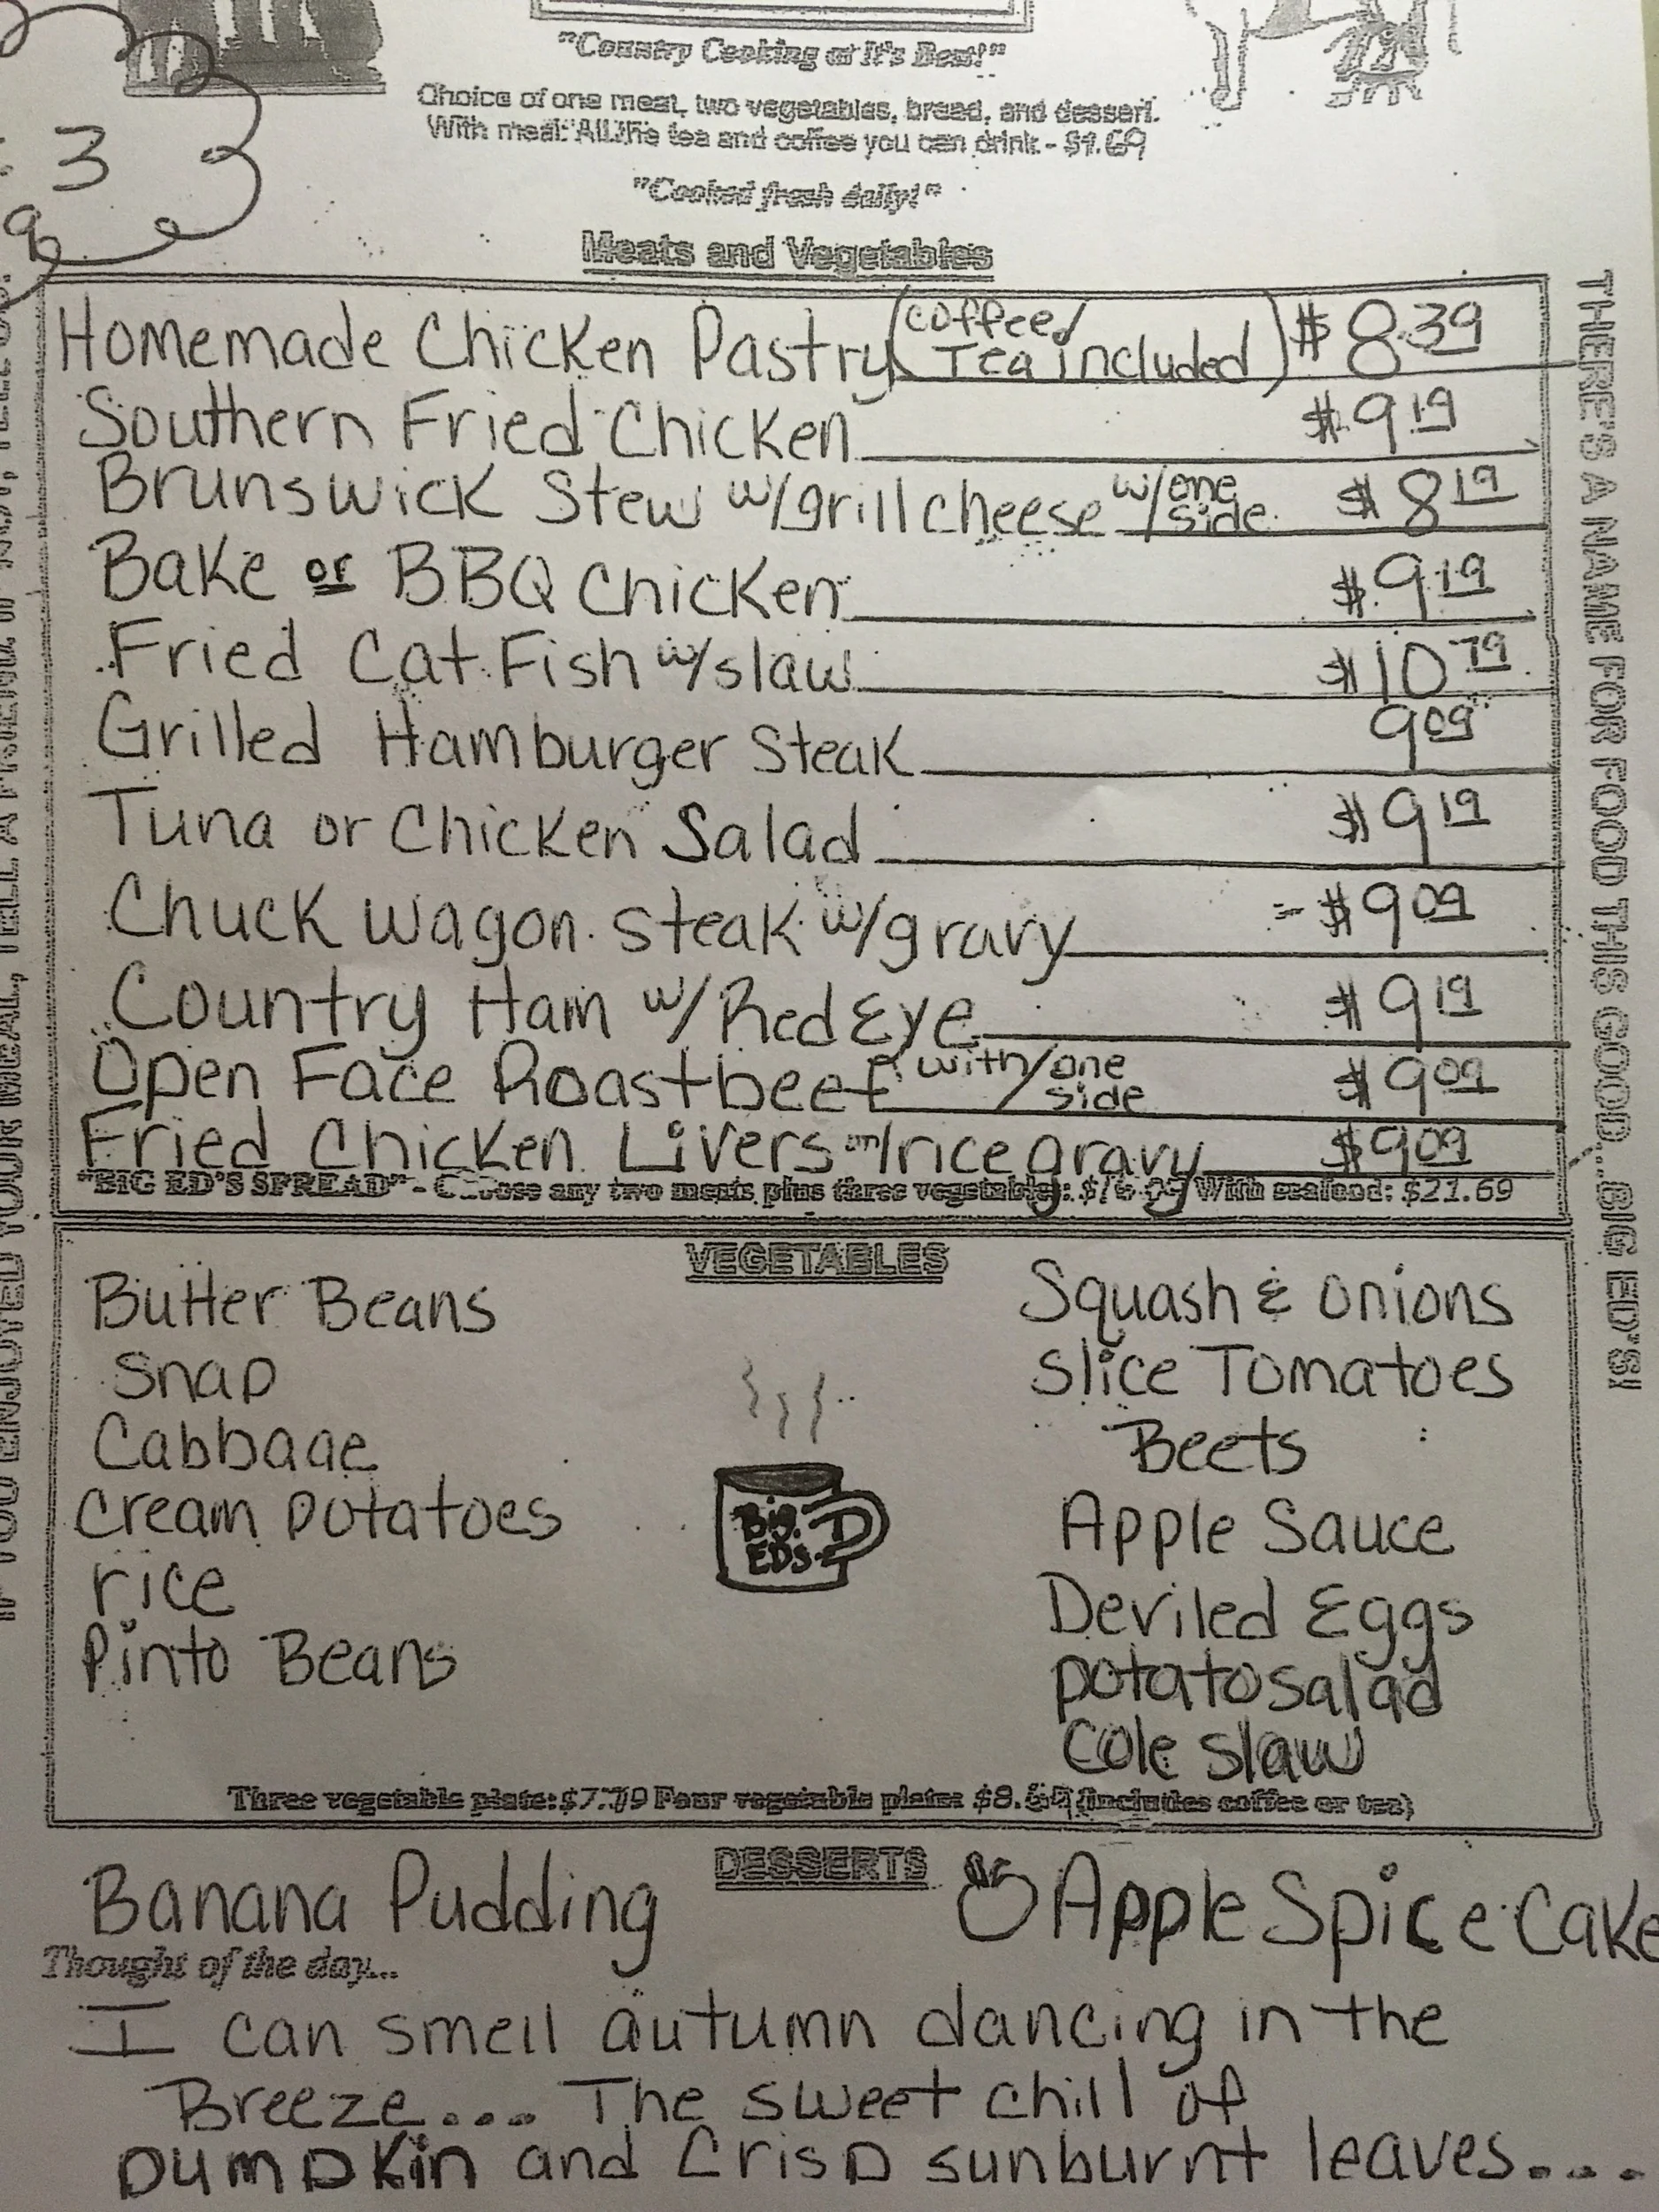 3
9
"Country Cooking at It's Best!"
Choice of one meat, two vegetables, bread, and dessert.
With meal: All the tea and coffee you can drink - $1.69
"Cooked fresh daily!"
Meats and Vegetables
Homemade Chicken Pastry (coffee/Tea included) $8.39
Southern Fried Chicken $9.19
Brunswick Stew w/grill cheese w/one side $8.19
Bake or BBQ Chicken $9.19
Fried Cat Fish w/slaw $10.79
Grilled Hamburger Steak 9.09
Tuna or Chicken Salad $9.19
Chuck wagon steak w/gravy $9.09
Country Ham w/ Red Eye $9.19
Open Face Roastbeef with/one side $9.09
Fried Chicken Livers rice gravy $9.09
"BIG ED'S SPREAD" - Choose any two meats plus three vegetables: With seafood: $21.69
VEGETABLES
Butter Beans
Snap
Cabbage
Cream potatoes
rice
Pinto Beans
Squash & onions
Slice Tomatoes
Beets
Apple Sauce
Deviled Eggs
potato salad
Cole slaw
Big EDS
Three vegetable plate: $7.79 Four vegetable plate: (includes coffee or tea)
DESSERTS
Banana Pudding
Apple Spice Cake
Thought of the day...
I can smell autumn dancing in the
Breeze.... The sweet chill of
pumpkin and Crisp sunburnt leaves....
IF YOU ENJOYED YOUR MEAL, TELL A FRIEND
THERE'S A NAME FOR FOOD THIS GOOD...BIG ED'S!